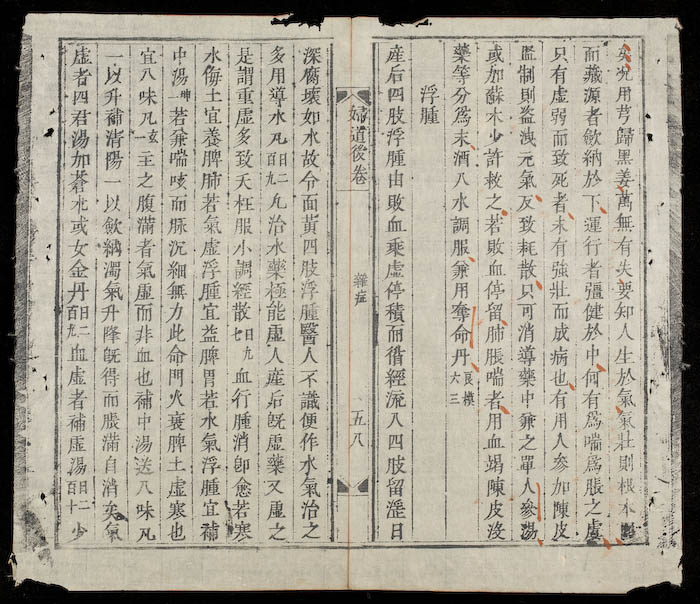 矣況用芎歸黑姜萬無有失要知人生於氣氣壯則根本
而藏源者歛納於下運行者彊健於中何有爲喘爲脹之虞
只有虛弱而致死者未有強壯而成病也有用人參加陳皮
監制則益洩元氣反致耗散只可消導藥中兼之單人參湯
或加蘇木少許救之若敗血停留肺脹喘者用血竭陳皮沒
藥等分爲末酒入水調服兼用奪命丹艮橫六三
浮腫
産后四肢浮腫由敗血乘虛停積而循經流入四肢留淫日
婦道後卷 雜症 五八
深腐壞如水故令面黃四肢浮腫醫人不識便作水氣治之
多用導水凡百九日二凡治水藥極能虛人産后旣虛藥又虛之
是謂重虛多致夭枉服小調經散七日九血行腫消卽愈若寒
水侮土宜養脾肺若氣虛浮腫宜益脾胃若水氣浮腫宜補
中湯坤一若兼喘咳而脈沉細無力此命門火衰脾土虛寒也
宜八味凡玄一主之腹滿者氣虛而非血也補中湯送八味凡
一以升補清陽一以歛納濁氣升降旣得而脹滿自消矣氣
虛者四君湯加蒼朮或女金丹百九日二血虛者補虛湯百十日二少